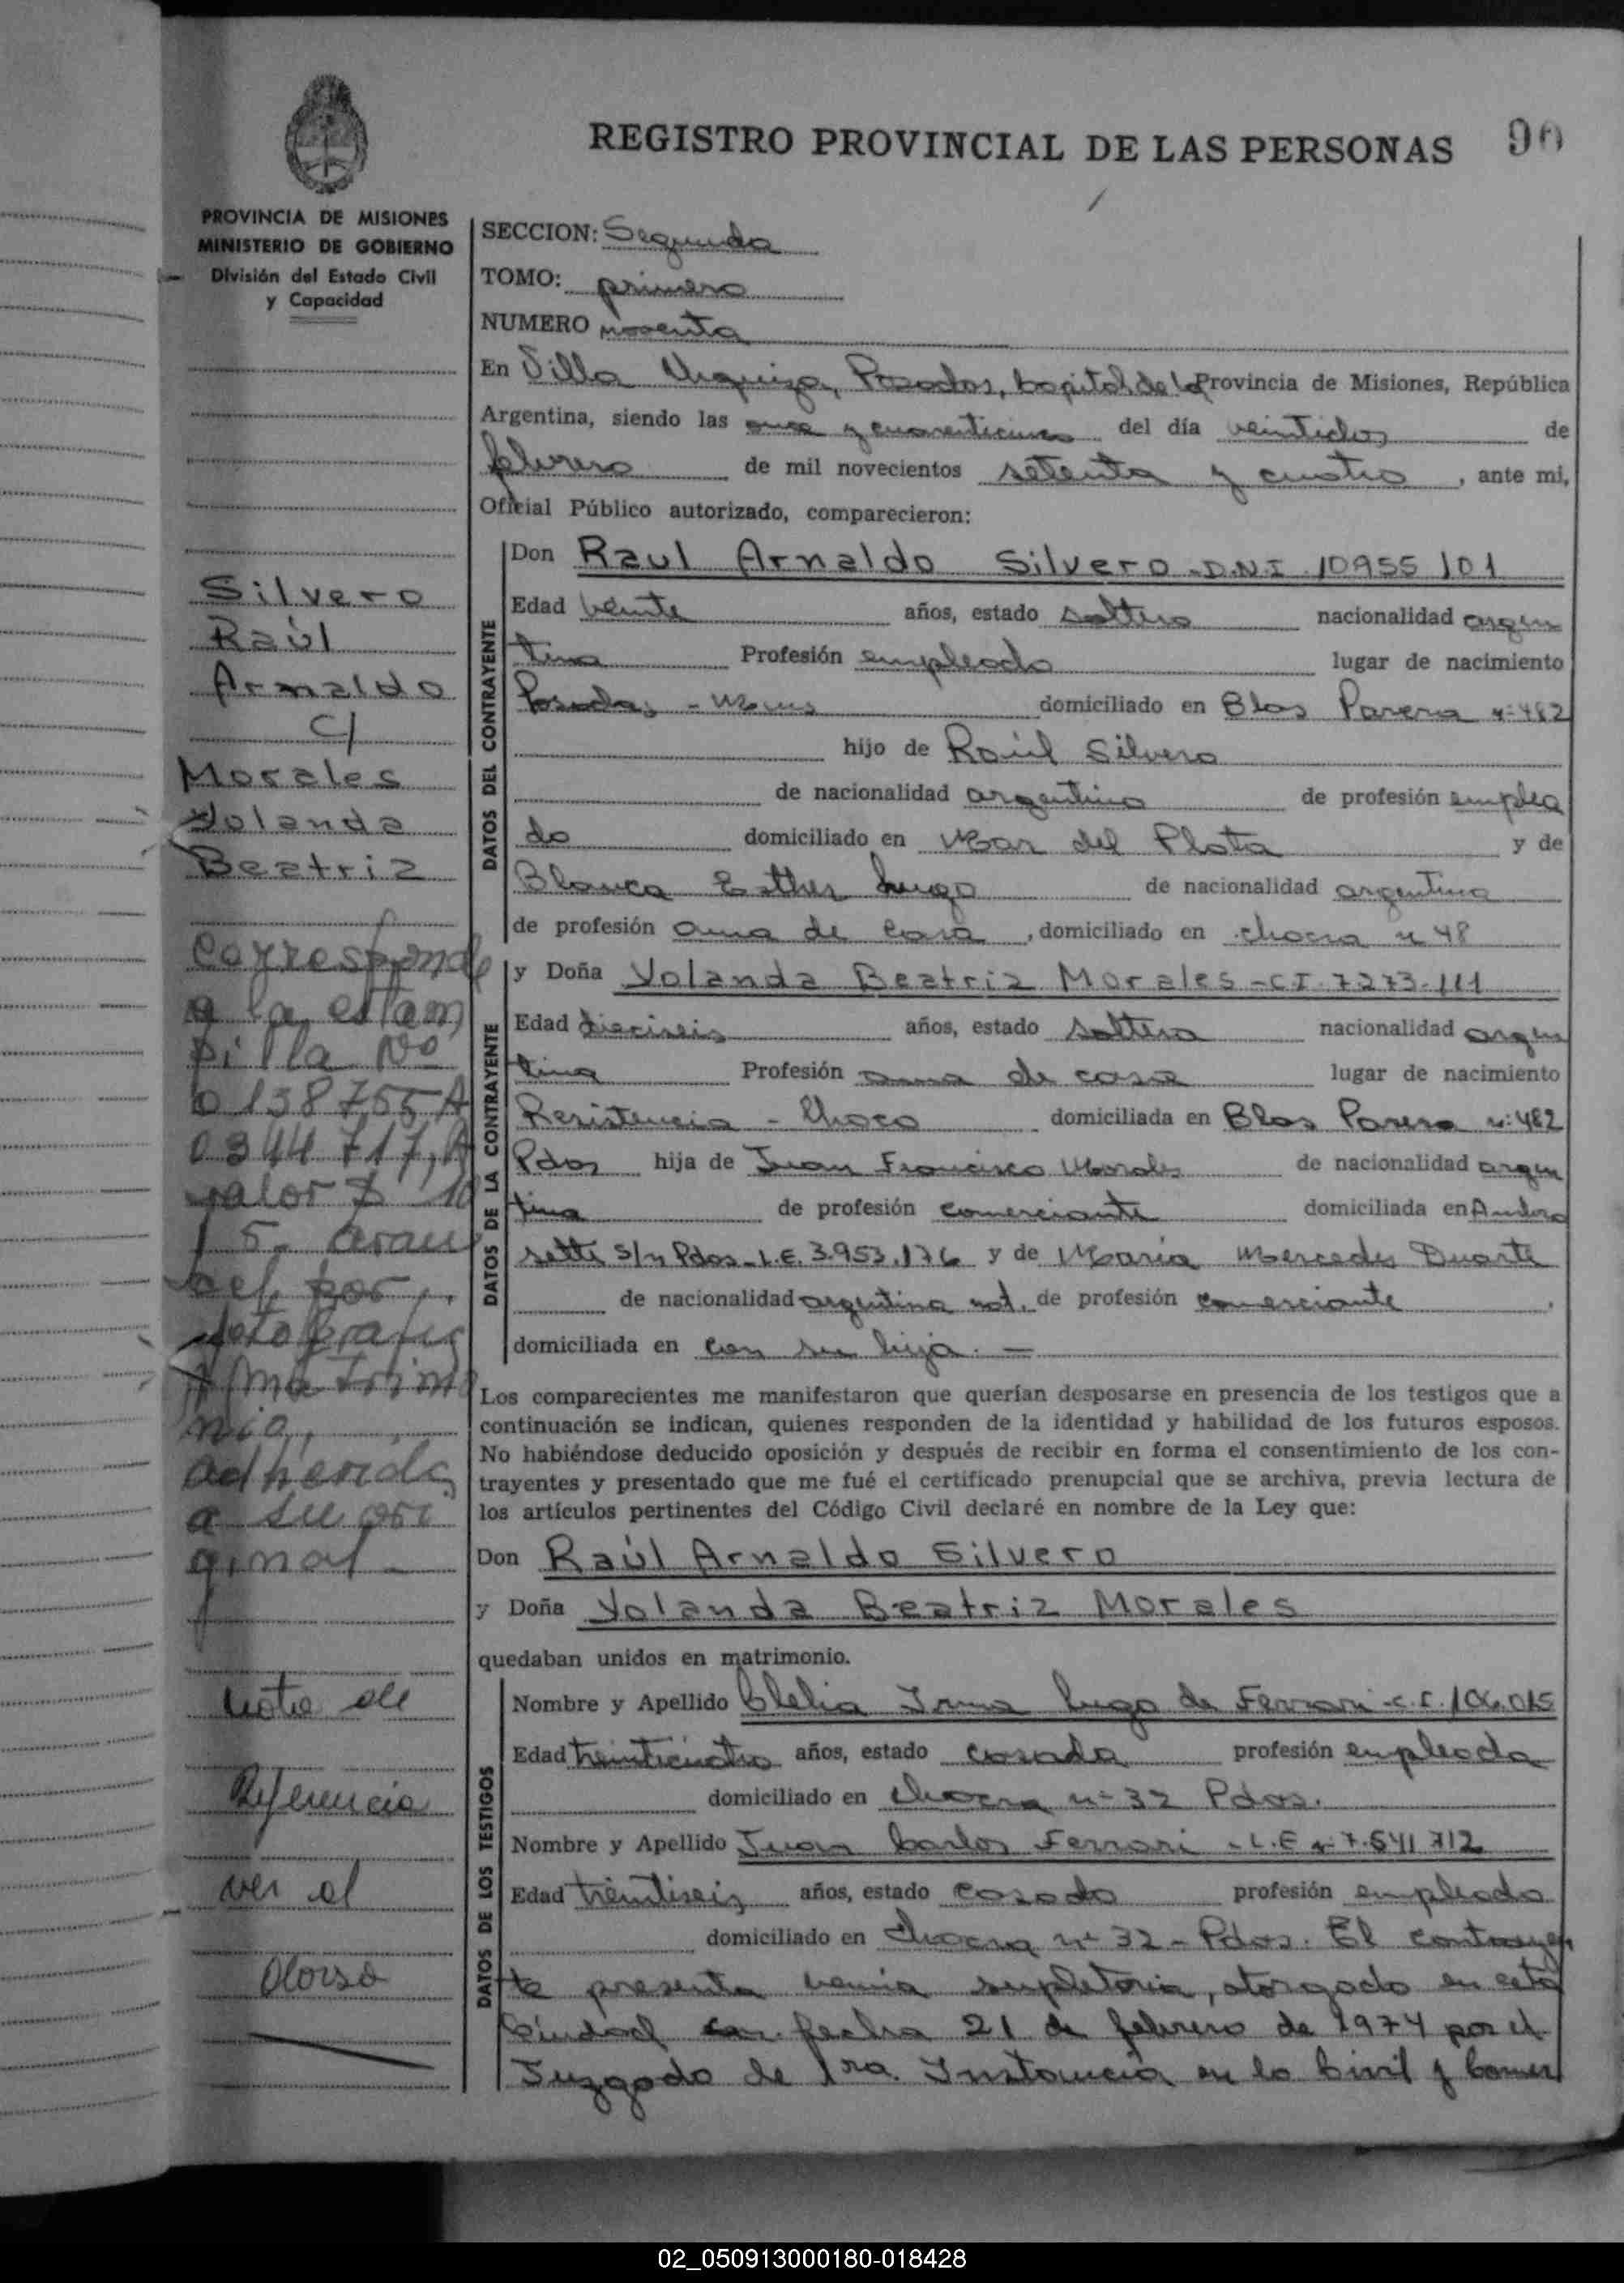 REGISTRO PROVINCIAL DE LAS PERSONAS 90
PROVINCIA DE MISIONES
MINISTERIO DE GOBIERNO
División del Estado Civil
y Capacidad
Silvero
Raúl
Arnaldo
c/
Morales
Yolanda
Beatriz
Corresponde
a la estam
pilla Nº
0138755 A
0344717, A
valor $ 10
y 5. aran
cel por
fotografia
/matrimo
nio,
adherida
a su ori
ginal -
nota de
Referencia
ver al
dorso
SECCION: Segunda
TOMO: primero
NUMERO noventa
En Villa Urquiza, Posadas, Capital de la Provincia de Misiones, República
Argentina, siendo las once y cuarenticinco del día veintidos de
febrero de mil novecientos setenta y cuatro, ante mi,
Oficial Público autorizado, comparecieron:
DATOS DEL CONTRAYENTE
Don Raul Arnaldo Silvero - D.N.I 10955101
Edad veinte años, estado soltero nacionalidad argen
tina Profesión empleado lugar de nacimiento
Posadas - Mnes domiciliado en Blas Parera nº 482
hijo de Raúl Silvero
de nacionalidad argentino de profesión emplea
do domiciliado en Mar del Plata y de
Blanca Esther Lugo de nacionalidad argentina
de profesión ama de casa, domiciliado en chacra n 48
DATOS DE LA CONTRAYENTE
y Doña Yolanda Beatriz Morales - C.I. 7273.111
Edad dieciseis años, estado soltera nacionalidad argen
tina Profesión ama de casa lugar de nacimiento
Resistencia - Chaco domiciliada en Blas Parera nº 482
Pdas hija de Juan Francisco Morales de nacionalidad argen
tina de profesión comerciante domiciliada en Andre
sette s/n Pdas - L.E. 3.953.176 y de Maria Mercedes Duarte
de nacionalidad argentina nat. de profesión comerciante,
domiciliada en con su hija. —
Los comparecientes me manifestaron que querían desposarse en presencia de los testigos que a
continuación se indican, quienes responden de la identidad y habilidad de los futuros esposos.
No habiéndose deducido oposición y después de recibir en forma el consentimiento de los con-
trayentes y presentado que me fué el certificado prenupcial que se archiva, previa lectura de
los artículos pertinentes del Código Civil declaré en nombre de la Ley que:
Don Raúl Arnaldo Silvero
y Doña Yolanda Beatriz Morales
quedaban unidos en matrimonio.
DATOS DE LOS TESTIGOS
Nombre y Apellido Clelia Irma Lugo de Ferrari - C.I. 106.015
Edad treinticuatro años, estado casada profesión empleada
domiciliado en chacra nº 32 Pdas.
Nombre y Apellido Juan Carlos Ferrari - L.E nº 7.541712
Edad treintiseis años, estado casado profesión empleado
domiciliado en chacra nº 32 - Pdas. El contrayen
te presenta venia supletoria, otorgado en esta
Ciudad con fecha 21 de febrero de 1974 por el
Juzgado de 1ra. Instancia en lo Civil y Comer
02_050913000180-018428